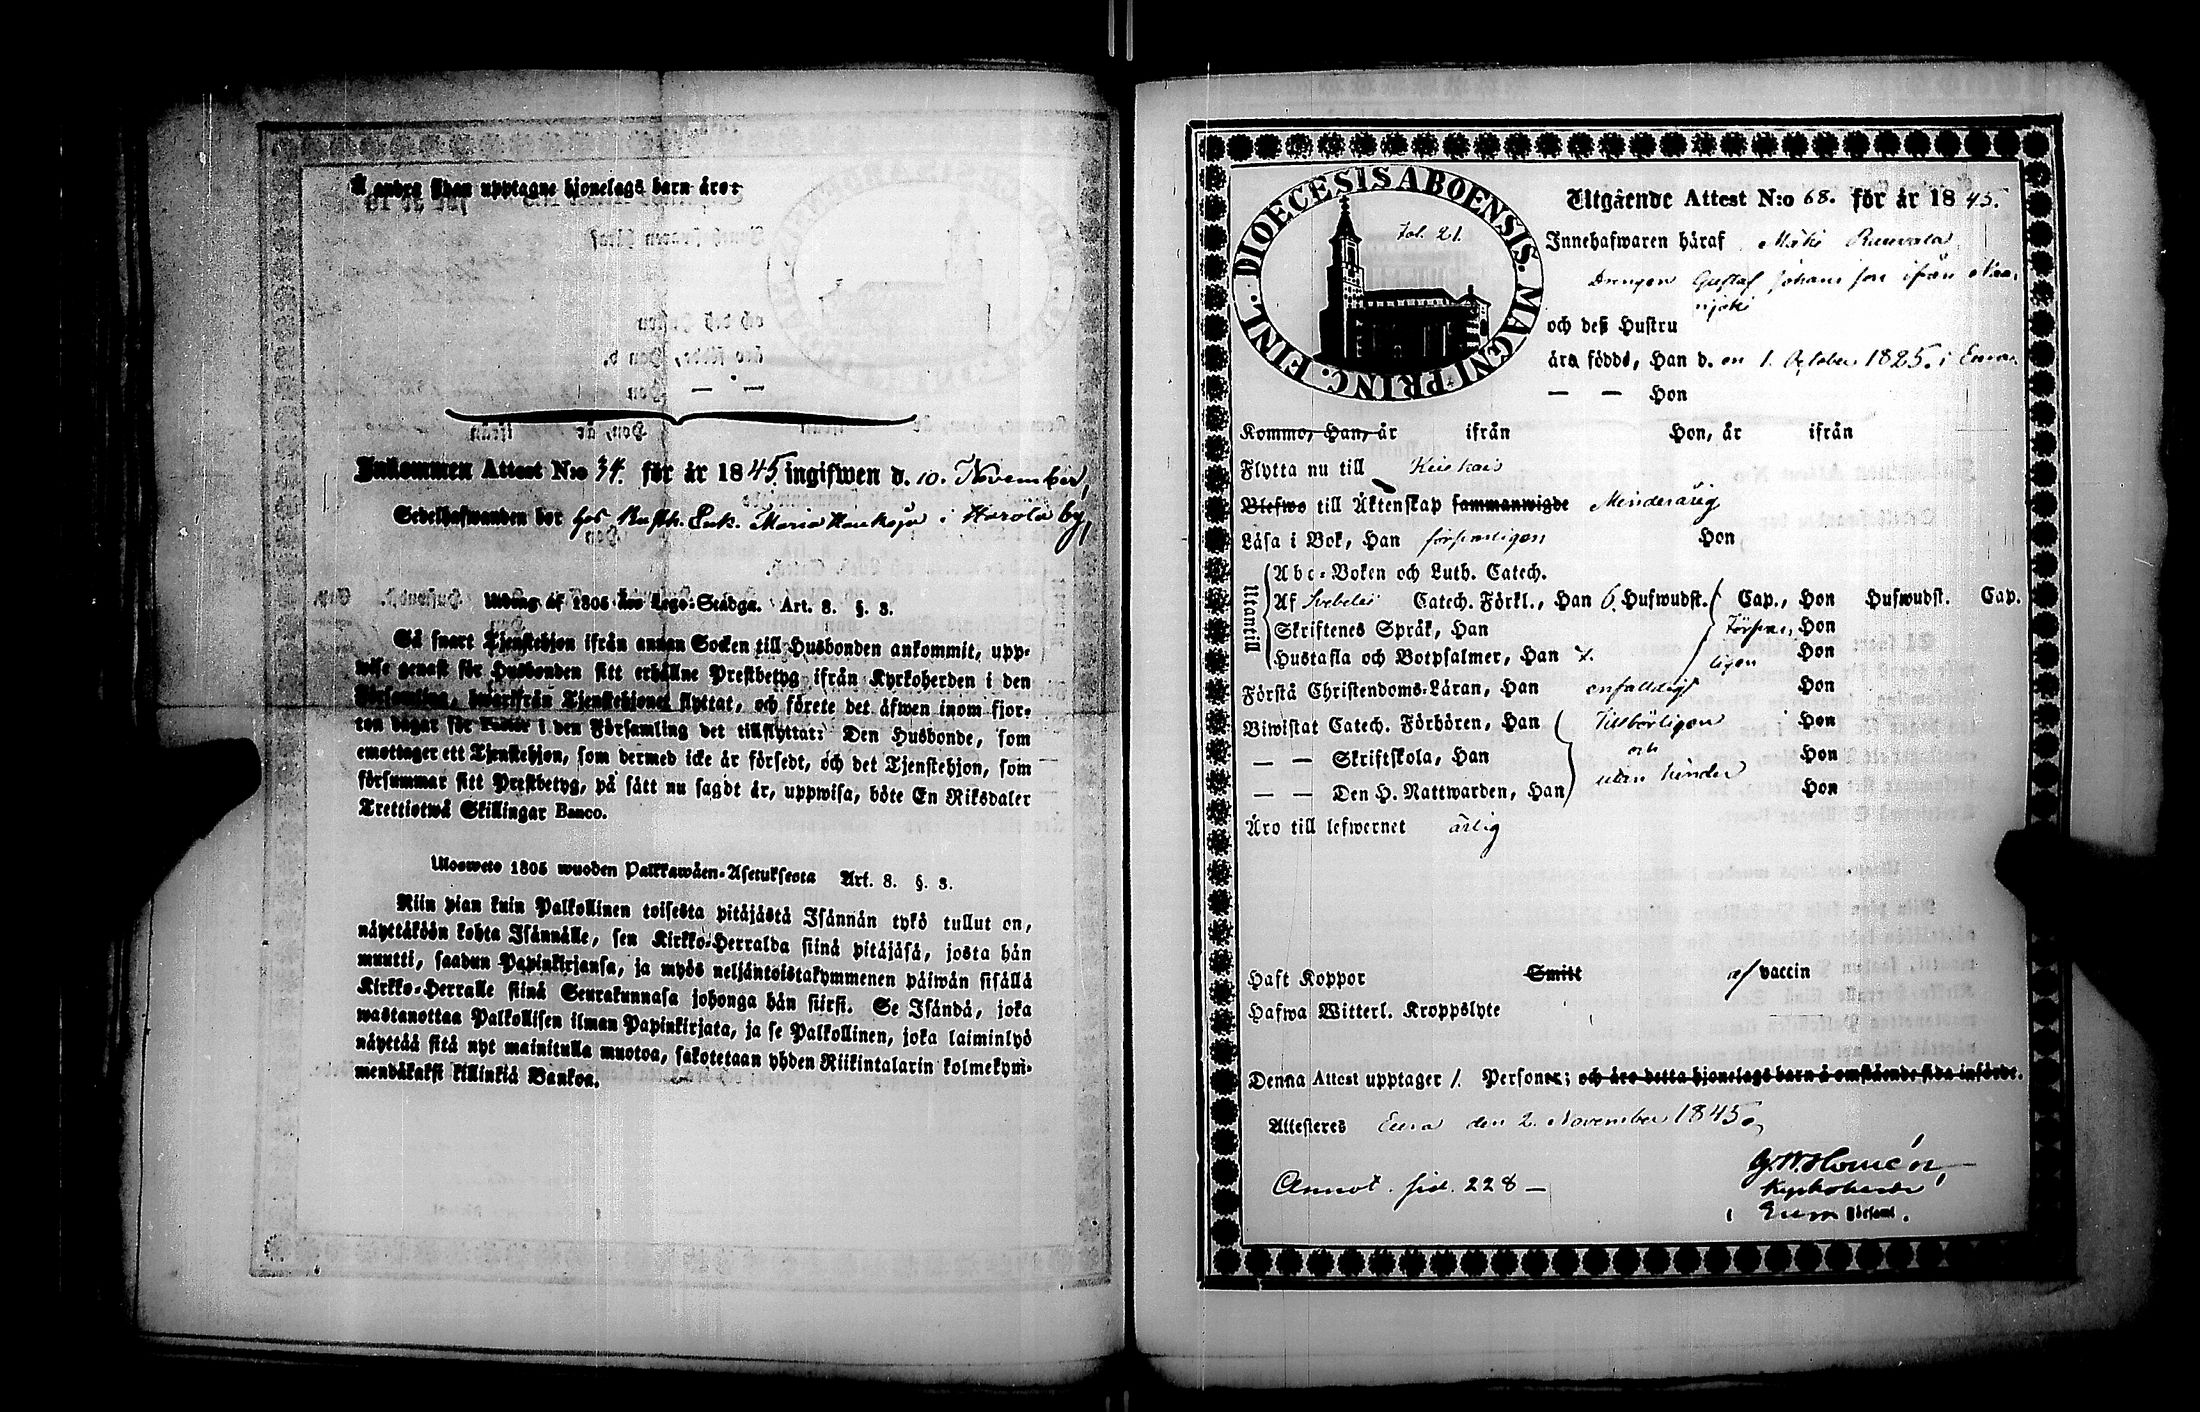 Å andra sidan upptagne hjonelags barn äro:
Inkommen Attest N:o 34. för år 1845. ingifwen d. 10. November,
Sedelhafwanden bor hos Rusth. Enk. Maria i Harola by,
Utdrag af 1805 års Lego-Stadga. Art. 8. §. 3.
Så snart Tjenstehjon ifrån annan Socken till Husbonden ankommit, upp-
wise genast för Husbonden sitt erhållne Prestbetyg ifrån Kyrkoherden i den
Församling, hwarifrån Tjenstehjonet flyttat, och förete det äfwen inom fjor-
ton dagar för Pastor i den Församling det tillflyttat: Den Husbonde, som
emottager ett Tjenstehjon, som dermed icke är försedt, och det Tjenstehjon, som
försummar sitt Prestbetyg, på sätt nu sagdt är, uppwisa, böte En Riksdaler
Trettiotwå Skillingar Banco.
Ulosweto 1805 wuoden Palkkawäen-Asetuksesta Art. 8. §. 3.
Niin pian kuin Palkollinen toisesta pitäjästä Isännän tykö tullut on,
näyttäköön kohta Isännälle, sen Kirkko-Herralda siinä pitäjäsä, josta hän
muutti, saadun Papinkirjansa, ja myös neljäntoistakymmenen päiwän sisällä
Kirkko-Herralle siinä Seurakunnasa johonga hän siirsi. Se Isändä, joka
wastanottaa Palkollisen ilman Papinkirjata, ja se Palkollinen, joka laiminlyö
näyttää sitä nyt mainitulla muotoa, sakotetaan yhden Riikintalarin kolmekym-
mendäkaksi killinkiä Bankoa.
DIOECESIS ABOENSIS. MAGNI PRINC. FINL.
Fol. 21.
Utgående Attest N:o 68. för år 1845.
Innehafwaren häraf Mäki
Drengen Gustaf Johansson ifrån Naa-
njoki
och deß Hustru
äro födde, Han d. en 1. October 1825. i Eura.
— — Hon
Kommo, Han, år ifrån Hon, år ifrån
Flytta nu till Kiukais
Blefwo till Äktenskap sammanwigde Minderårig
Läsa i Bok, Han försvarligen Hon
Utantill
Abc-Boken och Luth. Catech.
Af Svebelii Catech. Förkl., Han 6. Hufwudst. Cap., Hon Hufwudst. Cap.
Skriftenes Språk, Han Försvar- Hon
Hustafla och Botpsalmer, Han 7. ligen Hon
Förstå Christendoms-Läran, Han enfaldigt Hon
Biwistat Catech. Förhören, Han Tillbörligen Hon
— — Skriftskola, Han och Hon
— — Den H. Nattwarden, Han utan hinder Hon
Äro till lefwernet ärlig
Haft Koppor Smitt af vaccin
Hafwa Witterl. Kroppslyte
Denna Attest upptager 1. Personer; och äro detta hjonelags barn å omstående sida införde.
Attesteras Eura den 2. November 1845.
G. W. Homén,
Annot. sid. 228 — Kyrkoherde
i Eura Församl.